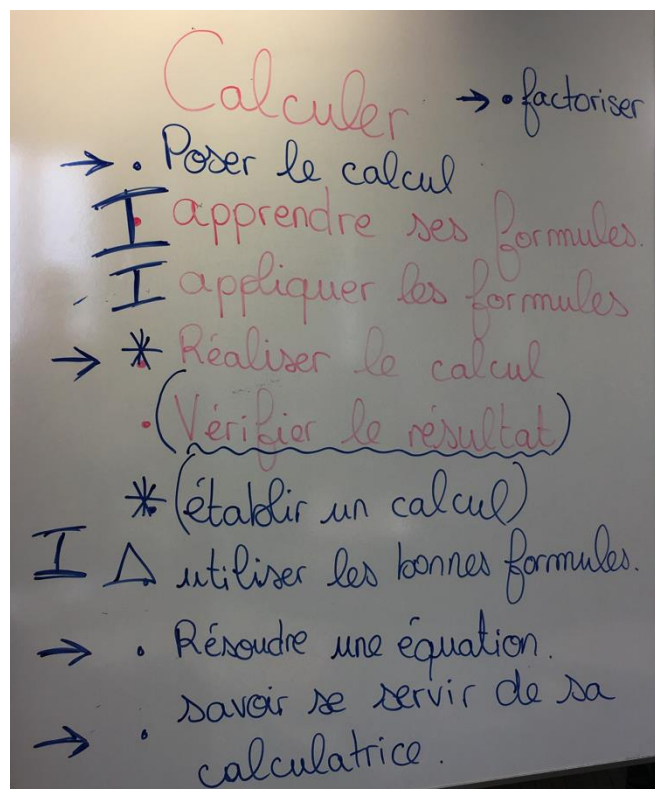 Calculer
→ • factoriser
→ • Poser le calcul
I • apprendre ses formules.
I appliquer les formules
→ * Réaliser le calcul
• (Vérifier le résultat)
* (établir un calcul)
I △ utiliser les bonnes formules.
→ • Résoudre une équation.
→ • savoir se servir de sa
calculatrice.